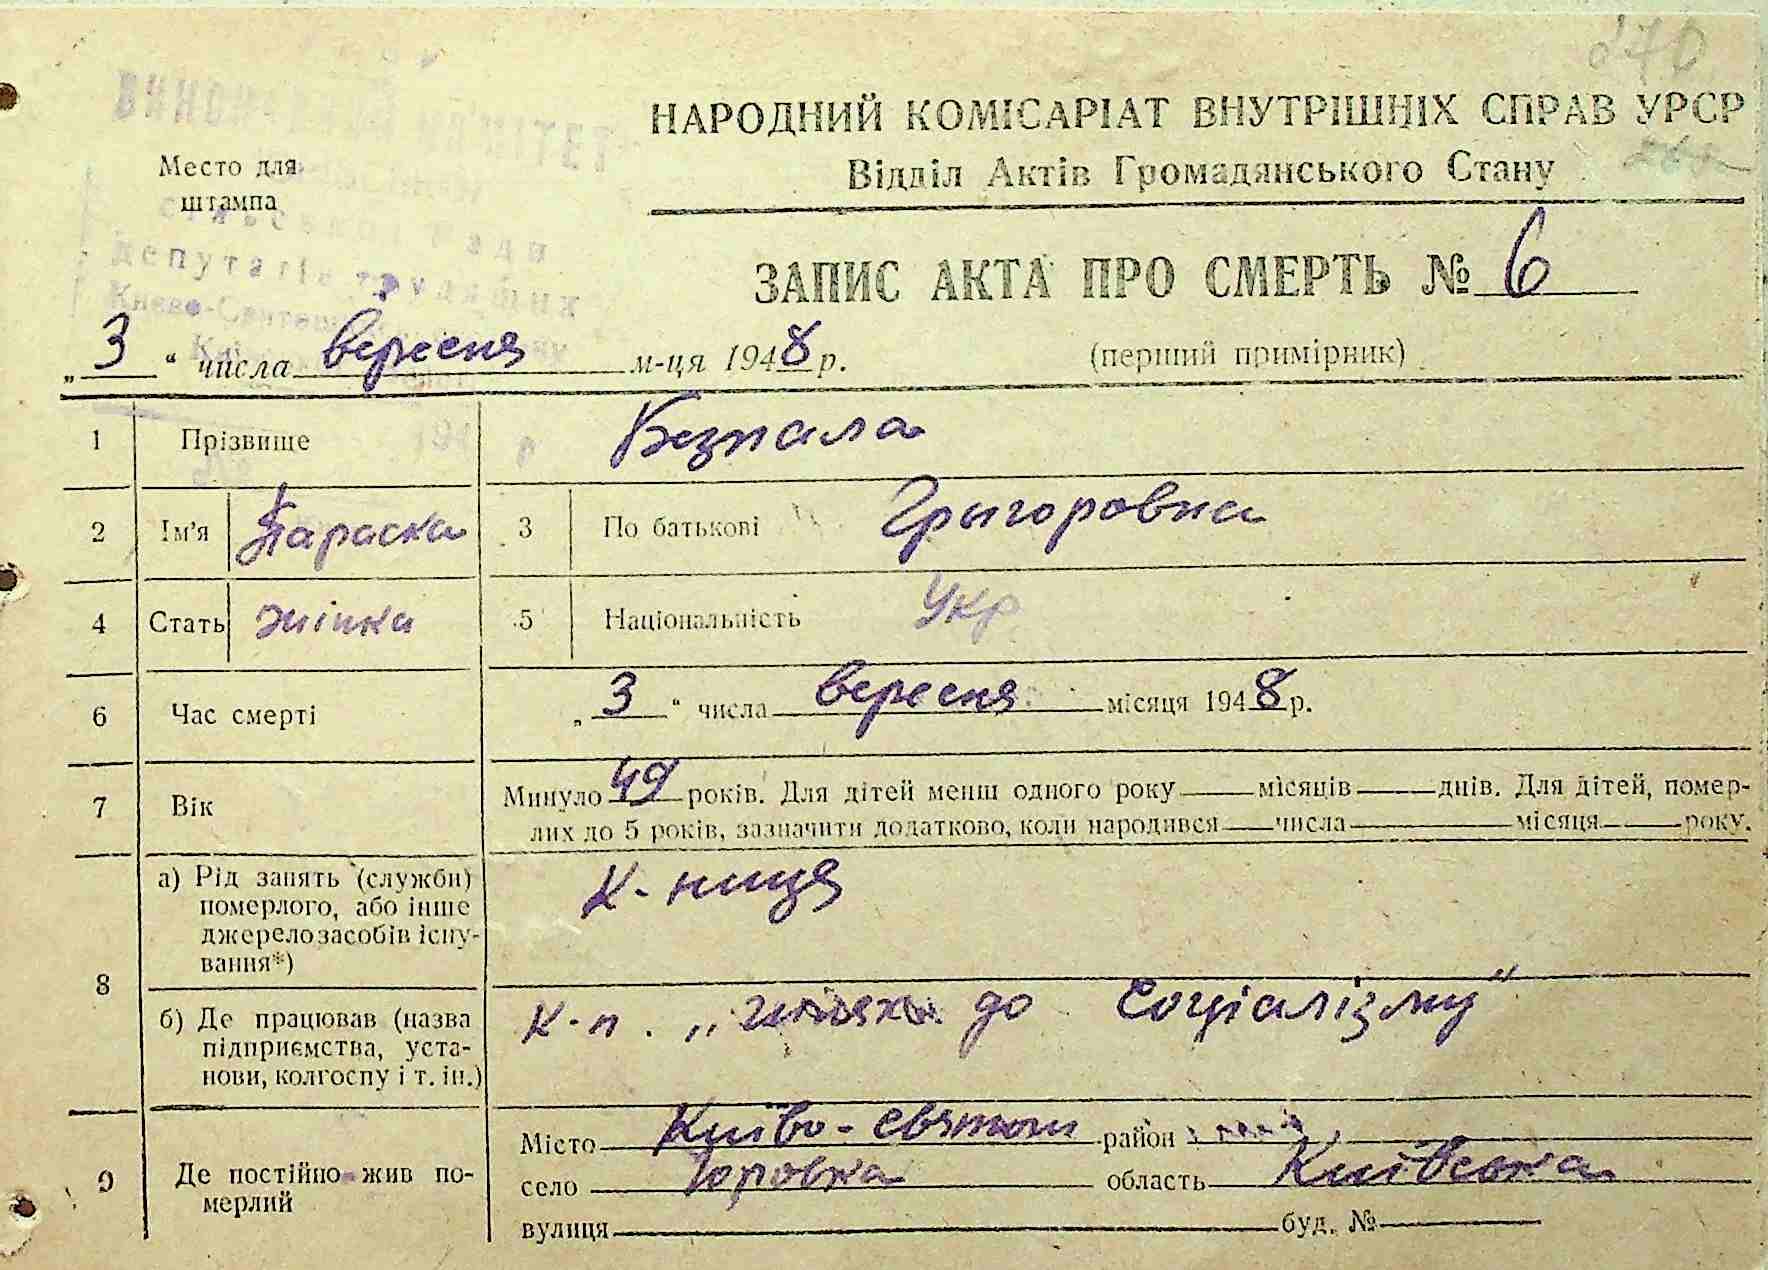 270
НАРОДНИЙ КОМІСАРІАТ ВНУТРІШНІХ СПРАВ УРСР
Відділ Актів Громадянського Стану
Место для
штампа
сільської ради
депутатів трудящих
Києво-Святошинського
ЗАПИС АКТА ПРО СМЕРТЬ № 6
„ 3 “ числа вересня м-ця 1948 р. (перший примірник)
1 Прізвище Безпала
2 Ім'я Параска 3 По батькові Григоровна
4 Стать жінка 5 Національність Укр
6 Час смерті „ 3 “ числа вересня місяця 1948 р.
7 Вік Минуло 49 років. Для дітей менш одного року місяців днів. Для дітей, помер-
лих до 5 років, зазначити додатково, коли народився числа місяця року.
8 а) Рід занять (служби) померлого, або інше джерело засобів існу-вання*) К-ниця
б) Де працював (назва підприємства, уста-нови, колгоспу і т. ін.) к-п. „шлях до Соціалізму"
9 Де постійно жив по-мерлий Місто Києво-Святош район
село Юровка область Київська
вулиця буд. №